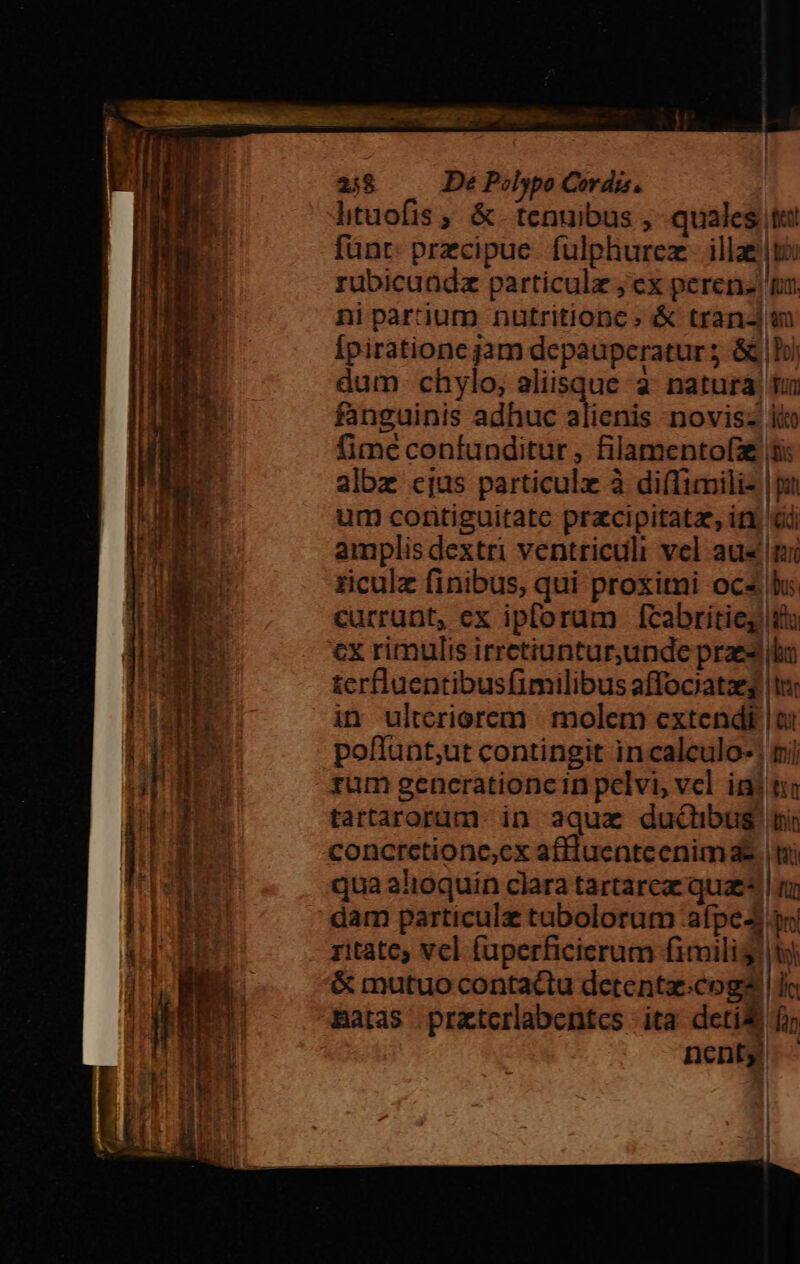 238 De Polypo Cordis.
lituoſis, & tenuibus, quales
ſunt præcipue ſulphureæ illæ
rubicundæ particulæ, ex peren-
ni partium nutritione, & tran-
ſpiratione jam depauperatur; &
dum chylo, aliisque à natura
ſanguinis adhuc alienis novis-
ſime confunditur, filamentoſæ
albæ ejus particulæ à diſſimili-
um contiguitate præcipitatæ, in
amplis dextri ventriculi vel au-
riculæ finibus, qui proximi oc-
currunt, ex ipſorum ſcabritie,
ex rimulis irretiuntur, unde præ-
terfluentibus ſimilibus aſſociatæ,
in ulteriorem molem extendi
poſſunt, ut contingit in calculo-
rum generatione in pelvi, vel in
tartarorum in aquæ ductibus
concretione, ex affluente enim a-
qua alioquin clara tartareæ quæ-
dam particulæ tubolorum aſpe-
ritate, vel ſuperficierum ſimili,
& mutuo contactu detentæ cog-
natas præterlabentes ita deti-
nent,